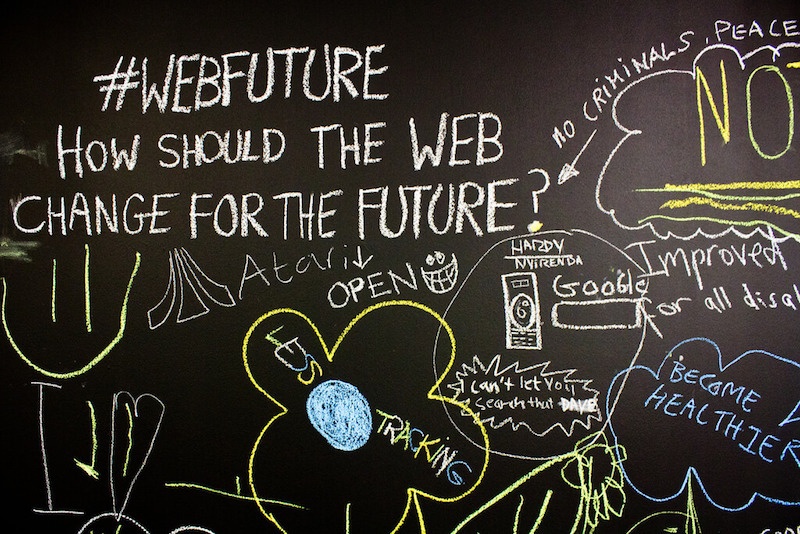 #WEBFUTURE
HOW SHOULD THE WEB
CHANGE FOR THE FUTURE?
NO CRIMINALS, PEACE
NO
Atari
OPEN
HARDY
NYIRENDA
Google
I can't let you
search that DAVE
Improved
for all disa
LESS
TRACKING
BECOME
HEALTHIER
I